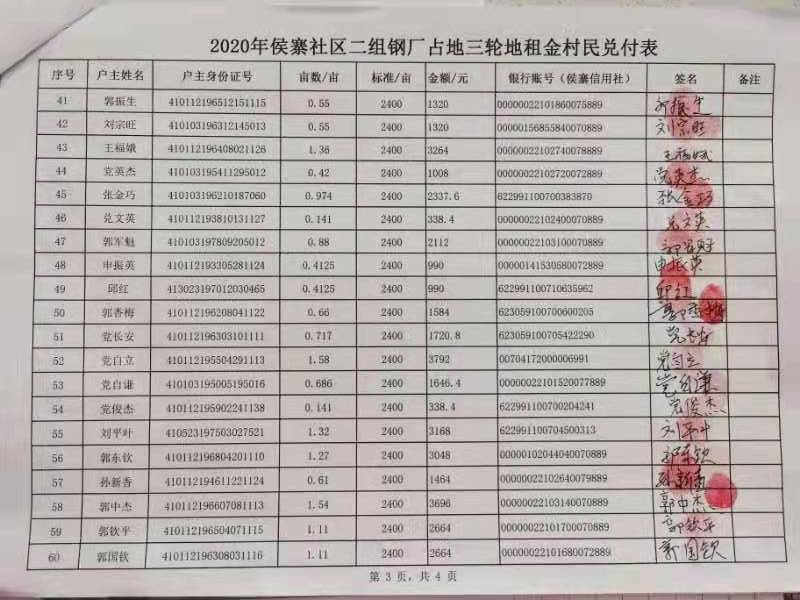 2020年侯寨社区二组钢厂占地三轮地租金村民兑付表
序号 户主姓名 户主身份证号 亩数/亩 标准/亩 金额/元 银行账号（侯寨信用社） 签名 备注
41 郭振生 410112196512151115 0.55 2400 1320 00000022101860075889 郭振生
42 刘宗旺 410103196312145013 0.55 2400 1320 00000156855840070889 刘宗旺
43 王福娥 410112196408021126 1.36 2400 3264 00000022102740078889 王福娥
44 党英杰 410103195411295012 0.42 2400 1008 00000022102720072889 党英杰
45 张金巧 410103196210187060 0.974 2400 2337.6 622991100700383870 张金巧
46 兑文英 410112193810131127 0.141 2400 338.4 00000022102400070889 兑文英
47 郭军魁 410103197809205012 0.88 2400 2112 00000022103100070889 郭军魁
48 申振英 410112193305281124 0.4125 2400 990 00000141530580072889 申振英
49 邱红 413023197012030465 0.4125 2400 990 622991100710635962 邱红
50 郭香梅 410112196208041122 0.66 2400 1584 623059100700600205 郭香梅
51 党长安 410112196303101111 0.717 2400 1720.8 623059100705422290 党长安
52 党自立 410112195504291113 1.58 2400 3792 00704172000006991 党自立
53 党自谦 410103195005195016 0.686 2400 1646.4 00000022101520077889 党自谦
54 党俊杰 410112195902241138 0.141 2400 338.4 622991100700204241 党俊杰
55 刘平叶 410523197503027521 1.32 2400 3168 622991100704500313 刘平叶
56 郭东钦 410112196804201110 1.27 2400 3048 00000102044040070889 郭东钦
57 孙新香 410112194611221124 0.61 2400 1464 00000022102640079889 孙新香
58 郭中杰 410112196607081113 1.54 2400 3696 00000022103140070889 郭中杰
59 郭钦平 410112196504071115 1.11 2400 2664 00000022101700070889 郭钦平
60 郭国钦 410112196308031116 1.11 2400 2664 00000022101680072889 郭国钦
第 3 页，共 4 页